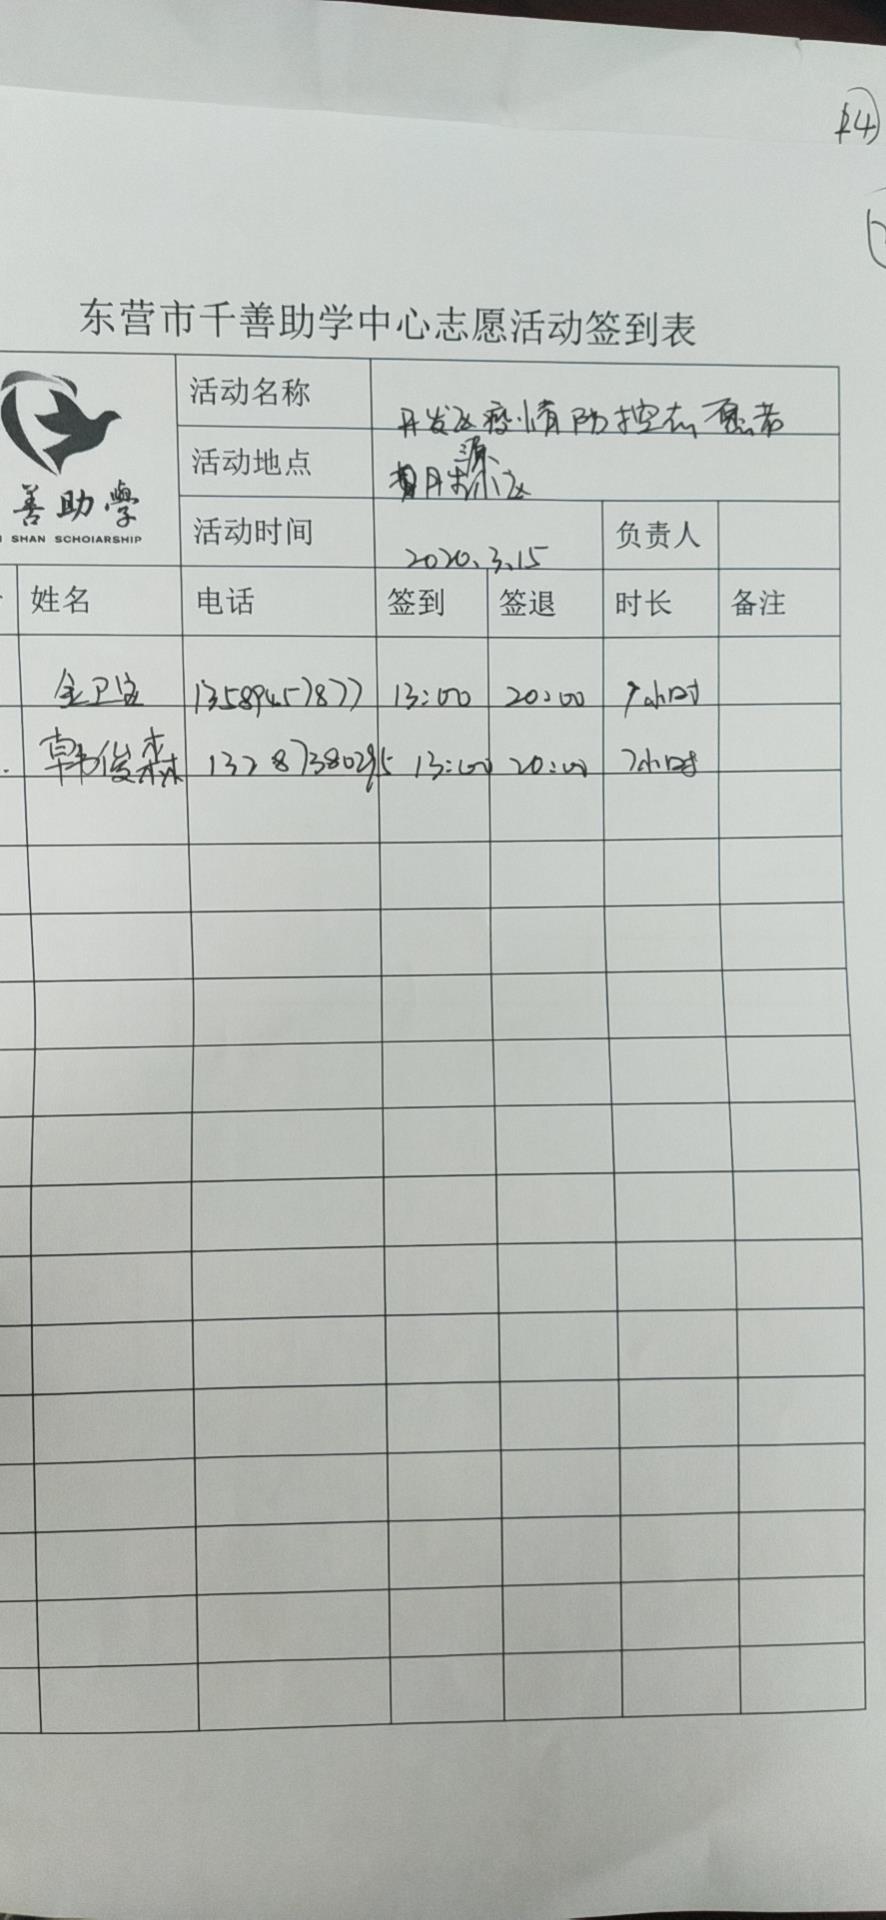 14
东营市千善助学中心志愿活动签到表
善助學
SHAN SCHOIARSHIP
活动名称 开发区疫情防控志愿者
活动地点 源 小区
活动时间 2020.3.15 负责人
姓名 电话 签到 签退 时长 备注
金卫宝 13589457877 13:00 20:00 7小时
韩俊森 13287380295 13:00 20:00 7小时